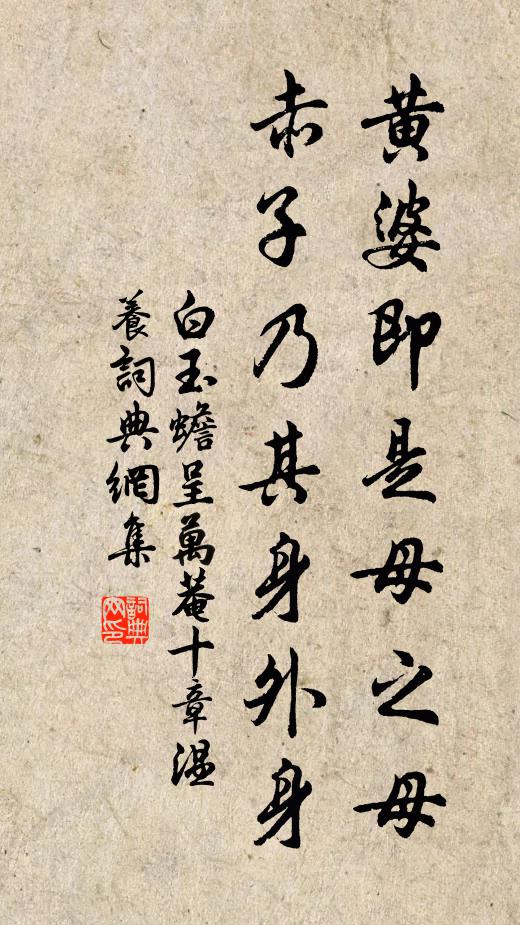 黄婆即是母之母
赤子乃其身外身
白玉蟾呈萬菴十章温
養詞典網集
詞典网印